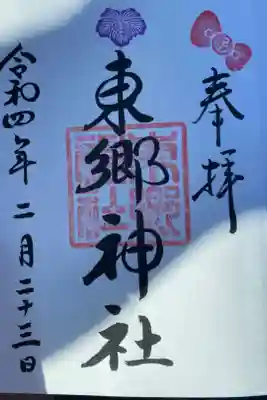 奉拝
東郷神社
令和四年二月二十三日